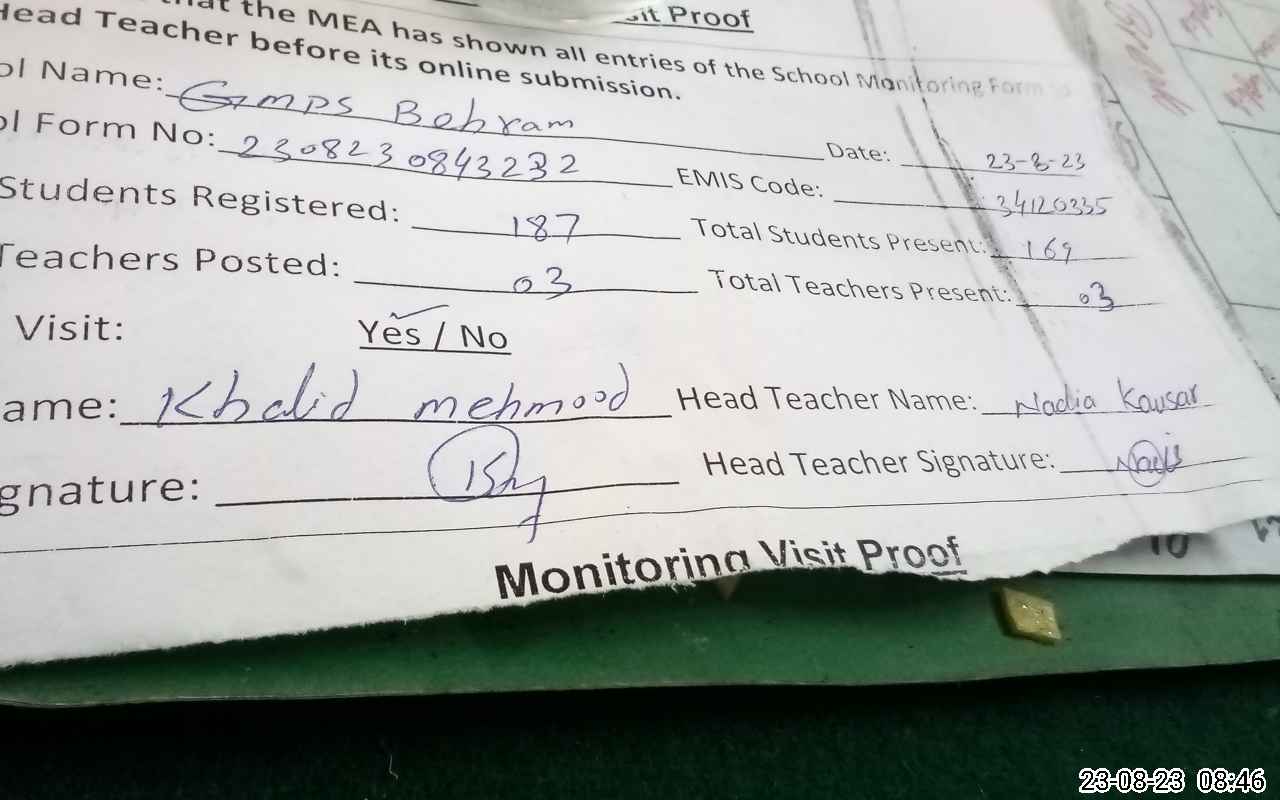 sit Proof
that the MEA has shown all entries of the School Monitoring Form to
Head Teacher before its online submission.
ol Name: GMPS Bohram
Date: 23-8-23
ol Form No: 2308230843232
EMIS Code: 34120335
Students Registered: 187
Total Students Present: 169
Teachers Posted: 03
Total Teachers Present: 03
Visit: Yes / No
ame: Khalid mehmood
Head Teacher Name: Nadia Kausar
gnature:
Head Teacher Signature:
Monitoring Visit Proof
10
23-08-23 08:46